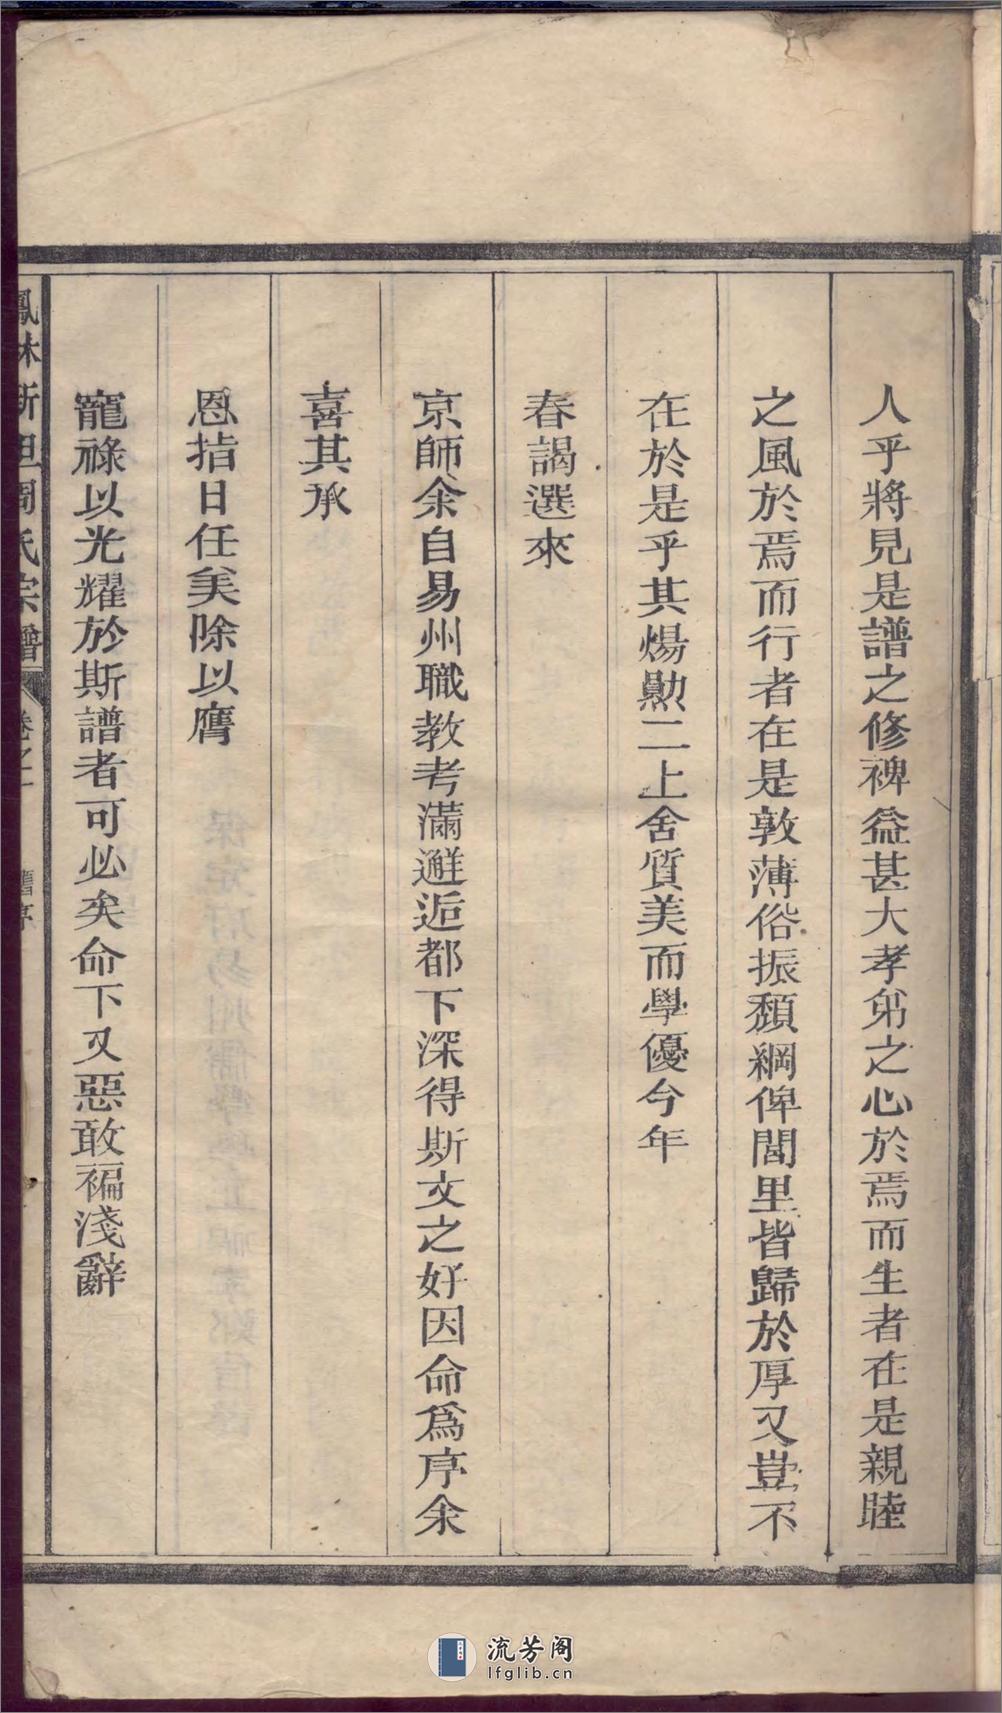 人乎將見是譜之修裨益甚大孝弟之心於焉而生者在是親睦
之風於焉而行者在是敦薄俗振頹綱俾閭里皆歸於厚又豈不
在於是乎其煬勲二上舍質美而學優今年
春謁選來
京師余自易州職教考滿邂逅都下深得斯文之好因命爲序余
喜其承
恩指日任美除以膺
寵祿以光耀於斯譜者可必矣命下又惡敢褊淺辭
周氏宗譜 卷之 舊序
流芳阁
lfglib.cn